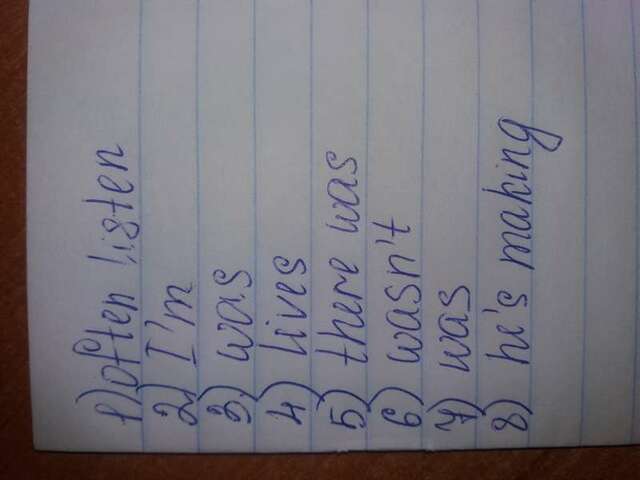 1) often listen
2) I'm
3) was
4) lives
5) there was
6) wasn't
7) was
8) he's making